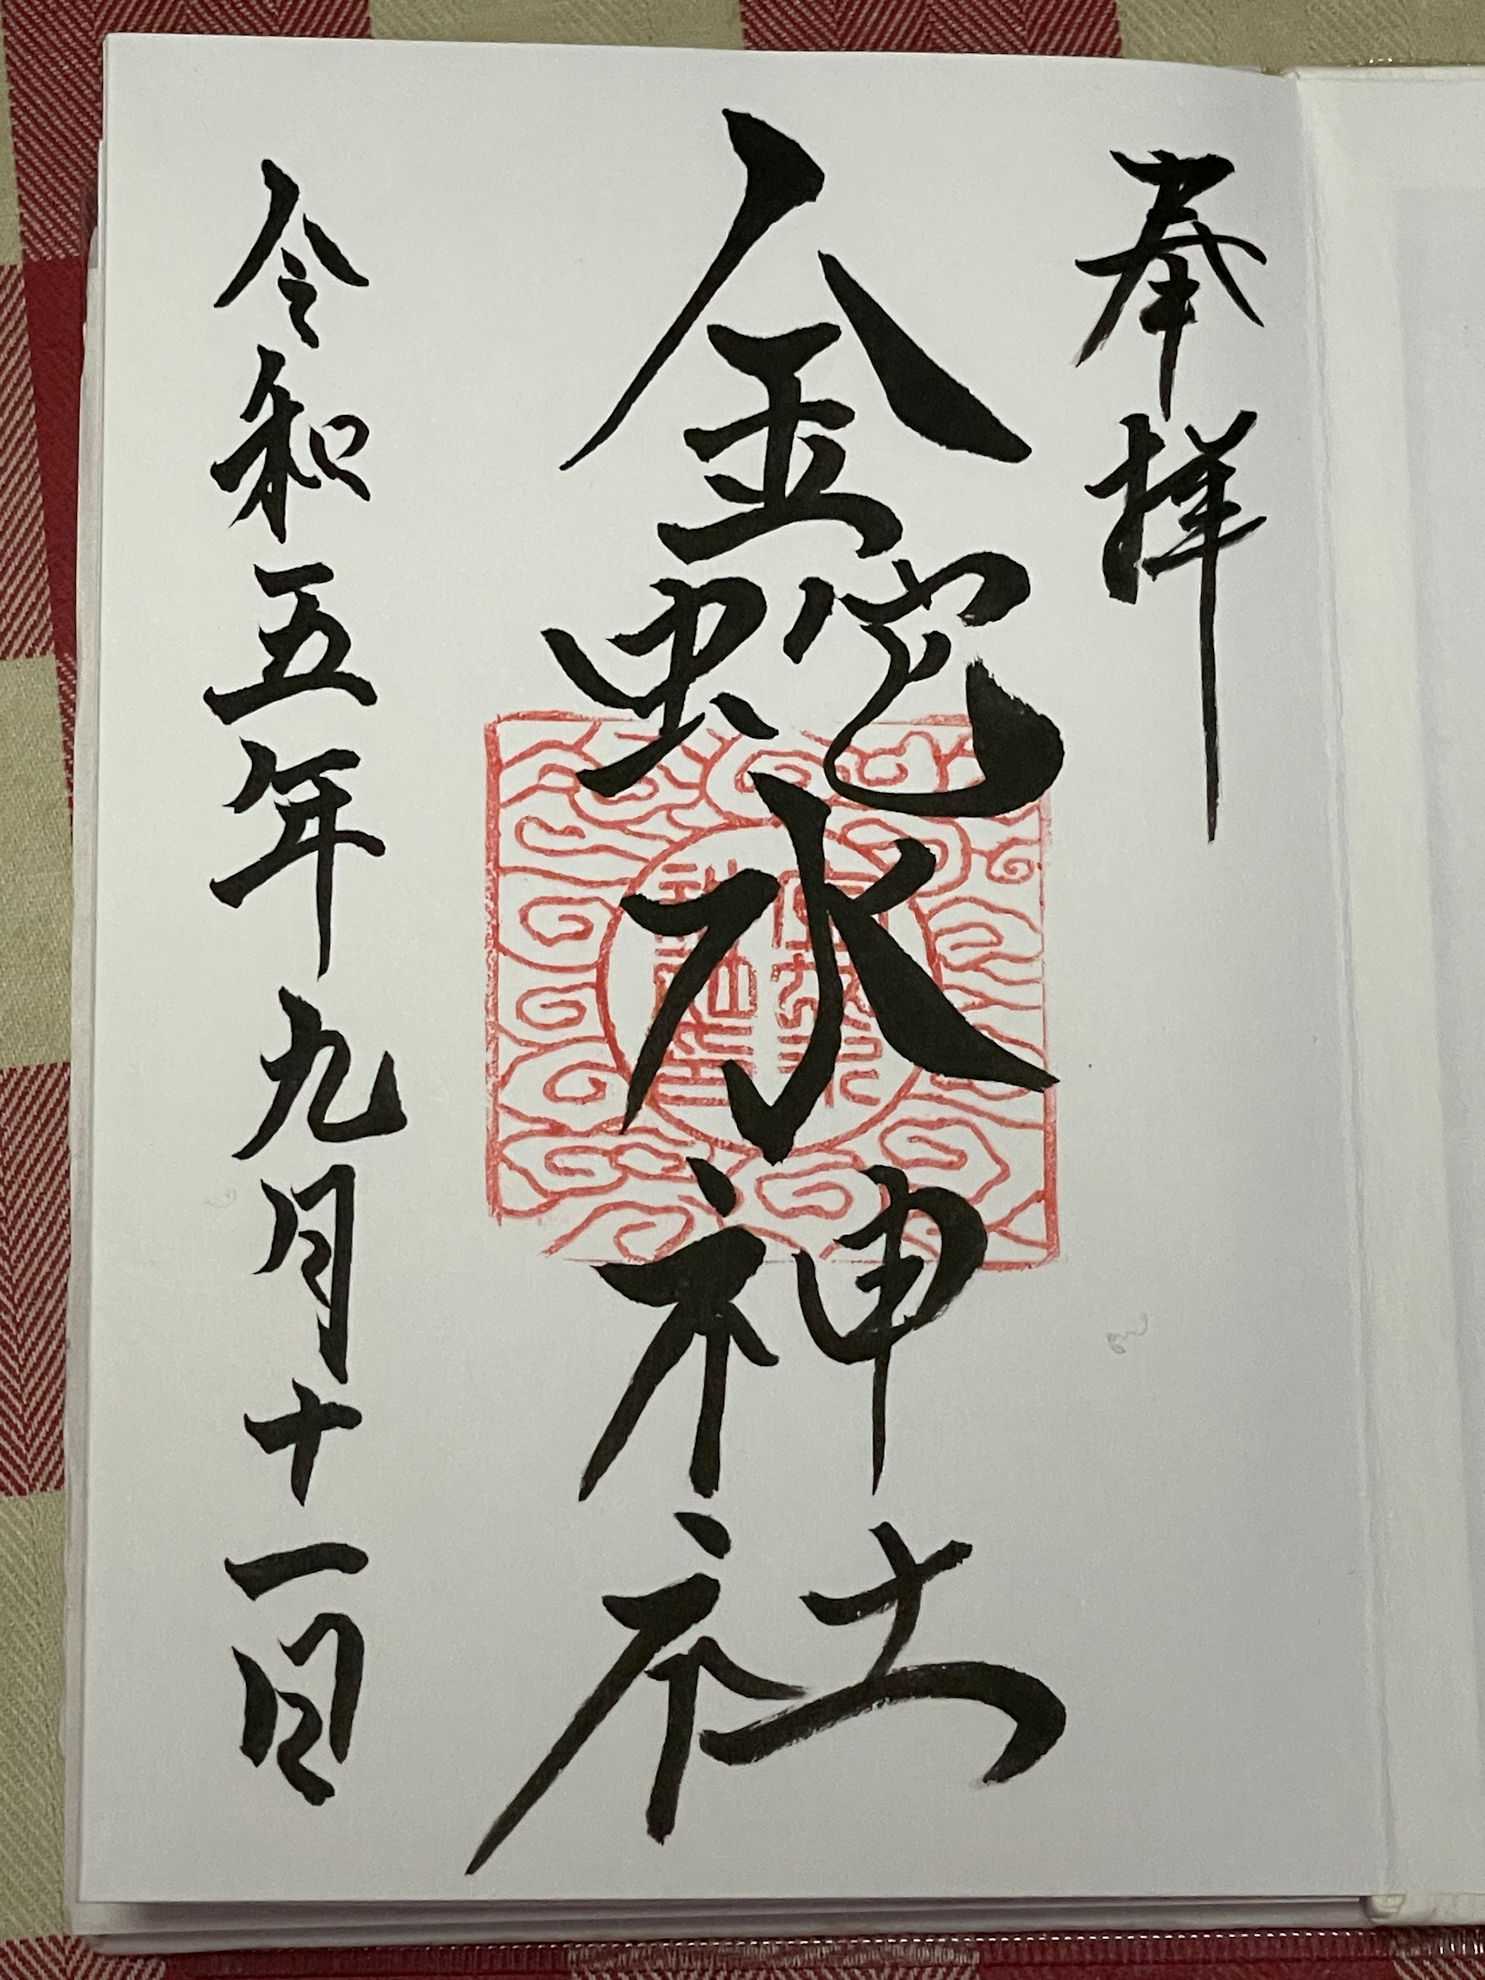 奉拝
金蛇水神社
令和五年九月十一日